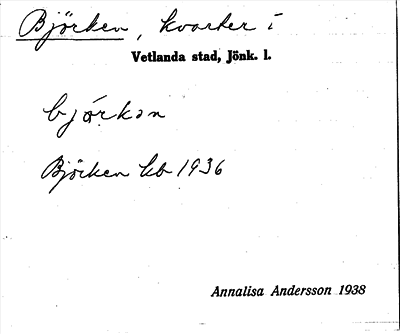 Björken, kvarter i
Vetlanda stad, Jönk. l.
bjórkən
Björken kb 1936
Annalisa Andersson 1938